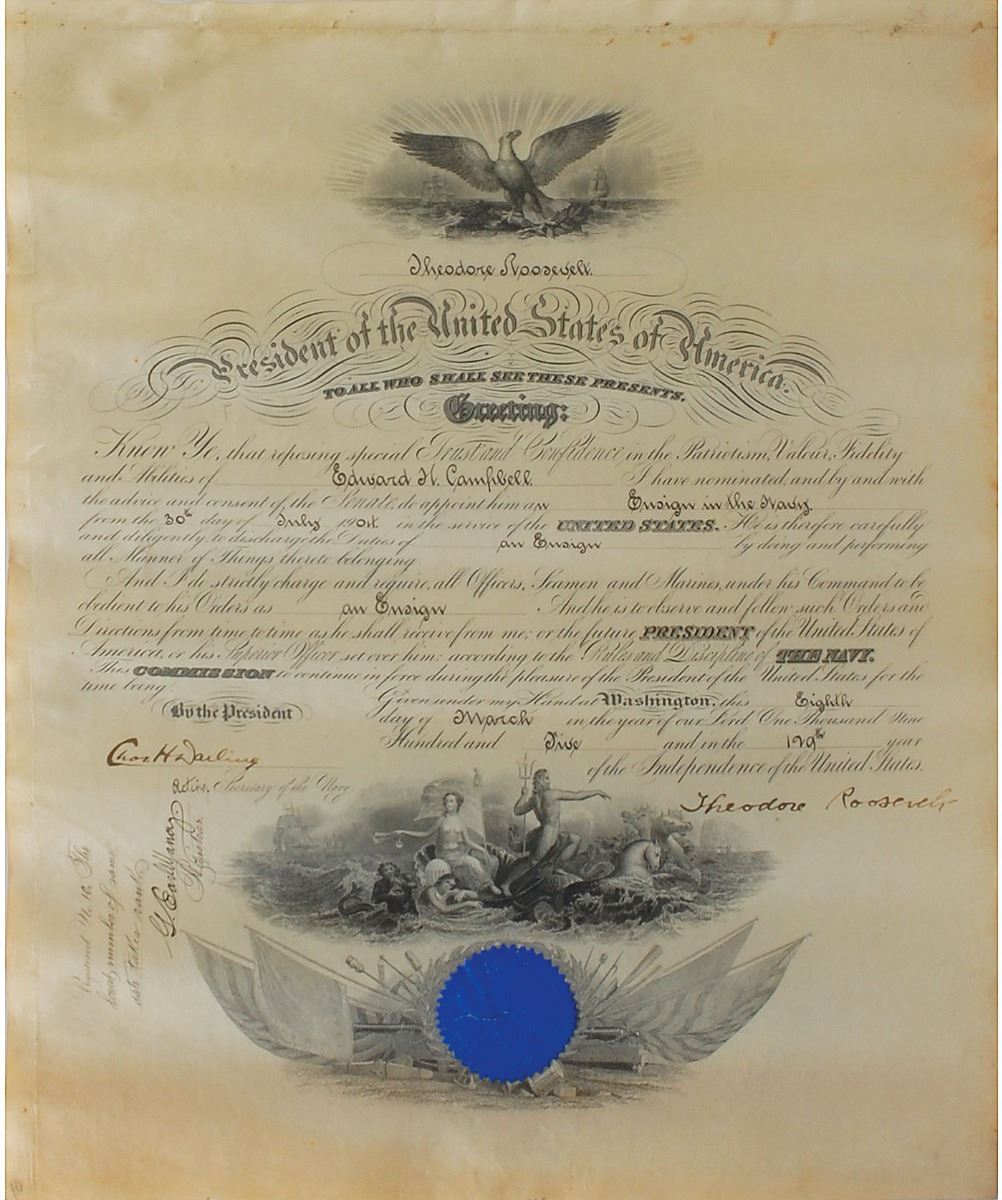 Theodore Roosevelt.
President of the United States of America.
TO ALL WHO SHALL SEE THESE PRESENTS.
Greeting:
Know Ye, that reposing special Trust and Confidence in the Patriotism, Valour, Fidelity
and Abilities of Edward H. Campbell. I have nominated, and by and with
the advice and consent of the Senate, do appoint him an Ensign in the Navy.
from the 30th day of July 1904. in the service of the UNITED STATES. He is therefore carefully
and diligently to discharge the Duties of an Ensign by doing and performing
all Manner of Things thereto belonging
And I do strictly charge and require, all Officers, Seamen and Marines, under his Command to be
obedient to his Orders as an Ensign And he is to observe and follow such Orders and
Directions from time to time as he shall receive from me; or the future PRESIDENT of the United States of
America, or his Superior Officer set over him; according to the Rules and Discipline of THE NAVY.
This COMMISSION to continue in force during the pleasure of the President of the United States for the
time being.
Given under my Hand at Washington, this Eighth
By the President
day of March in the year of our Lord One Thousand Nine
Hundred and Five and in the 129th year
of the Independence of the United States.
Chas H Darling
Secretary of the Navy
Theodore Roosevelt
Registrar
number of same
date takes rank
10